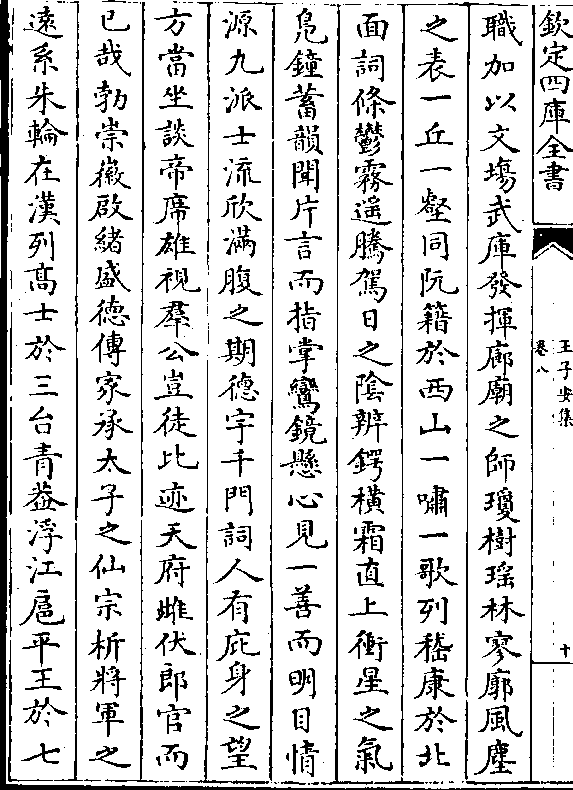 欽定四庫全書
王子安集
卷八
十
職加以文場武庫發揮廊廟之師瓊樹瑶林寥廓風塵
之表一丘一壑同阮籍於西山一嘯一歌列嵇康於北
面詞條鬱霧遥騰駕日之陰辨鍔橫霜直上衝星之氣
鳬鐘蓄韻聞片言而指掌鸞鏡懸心見一善而明目情
源九派士流欣滿腹之期德宇千門詞人有庇身之望
方當坐談帝席雄視羣公豈徒比迹天府雌伏郎官而
已哉勃崇徽啟緒盛德傳家承太子之仙宗析將軍之
遠系朱輪在漢列髙士於三台青葢浮江扈平王於七